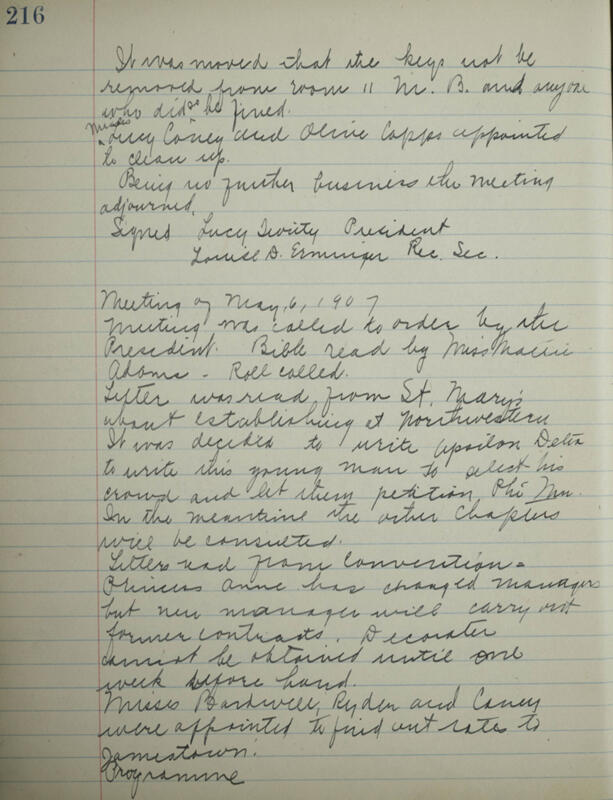 216
It was moved that the keys not be
removed from room 11 M. B. and anyone
who did so be fined.
Misses
Lucy Coney and Olive Capps appointed
to clean up.
Being no further business the meeting
adjourned.
Signed Lucy President
Louise D. Erminger Rec. Sec.
Meeting of May, 6, 1907
Meeting was called to order by the
President. Bible read by Miss Mattie
Adams - Roll called.
Letter was read from St. Mary's
about establishing at Northwestern
It was decided to write Upsilon Delta
to write this young man to elect his
crowd and let them petition Phi Mu.
In the meantime the other Chapters
will be consulted.
Letters read from Convention -
Princess Anne has changed managers
but new manager will carry out
former contracts. Decorater
cannot be obtained until one
week before hand.
Misses Bardwell, Ryder and Coney
were appointed to find out rates to
Jamestown.
Programme